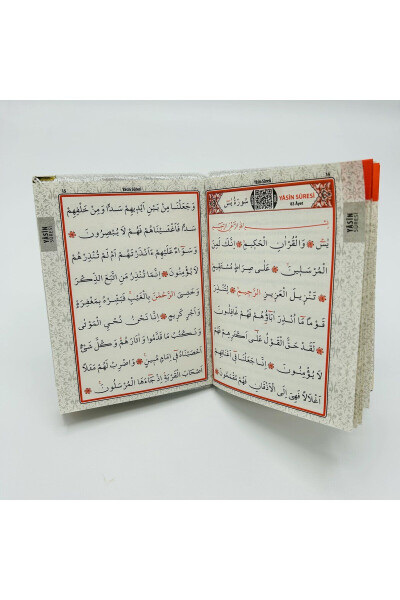 14
Yâsin Sûresi
سُورَةُ يٰسٓ
YÂSÎN SÛRESİ
83 Âyet
YÂSÎN
SÛRESİ
يٰسٓ وَالْقُرْاٰنِ الْحَكِيمِ اِنَّكَ لَمِنَ
الْمُرْسَلِينَ عَلٰى صِرَاطٍ مُسْتَقِيمٍ
تَنْزِيلَ الْعَزِيزِ الرَّحِيمِ لِتُنْذِرَ
قَوْمًا مَٓا اُنْذِرَ اٰبَٓاؤُ۬هُمْ فَهُمْ غَافِلُونَ
لَقَدْ حَقَّ الْقَوْلُ عَلٰٓى اَكْثَرِهِمْ فَهُمْ
لَا يُؤْمِنُونَ اِنَّا جَعَلْنَا فٓى اَعْنَاقِهِمْ
اَغْلَالًا فَهِىَ اِلَى الْاَذْقَانِ فَهُمْ مُقْمَحُونَ
Yâsin Sûresi
YÂSÎN
SÛRESİ
وَجَعَلْنَا مِنْ بَيْنِ اَيْدِيهِمْ سَدًّا وَمِنْ خَلْفِهِمْ
سَدًّا فَاَغْشَيْنَاهُمْ فَهُمْ لَا يُبْصِرُونَ
وَسَوَٓاءٌ عَلَيْهِمْ ءَاَنْذَرْتَهُمْ اَمْ لَمْ تُنْذِرْهُمْ
لَا يُؤْمِنُونَ اِنَّمَا تُنْذِرُ مَنِ اتَّبَعَ الذِّكْرَ
وَخَشِىَ الرَّحْمٰنَ بِالْغَيْبِ فَبَشِّرْهُ بِمَغْفِرَةٍ
وَاَجْرٍ كَرِيمٍ اِنَّا نَحْنُ نُحْيِى الْمَوْتٰى
وَنَكْتُبُ مَا قَدَّمُوا وَاٰثَارَهُمْ وَكُلَّ شَىْءٍ
اَحْصَيْنَاهُ فٓى اِمَامٍ مُبِينٍ وَاضْرِبْ لَهُمْ مَثَلًا
اَصْحَابَ الْقَرْيَةِ اِذْ جَٓاءَهَا الْمُرْسَلُونَ